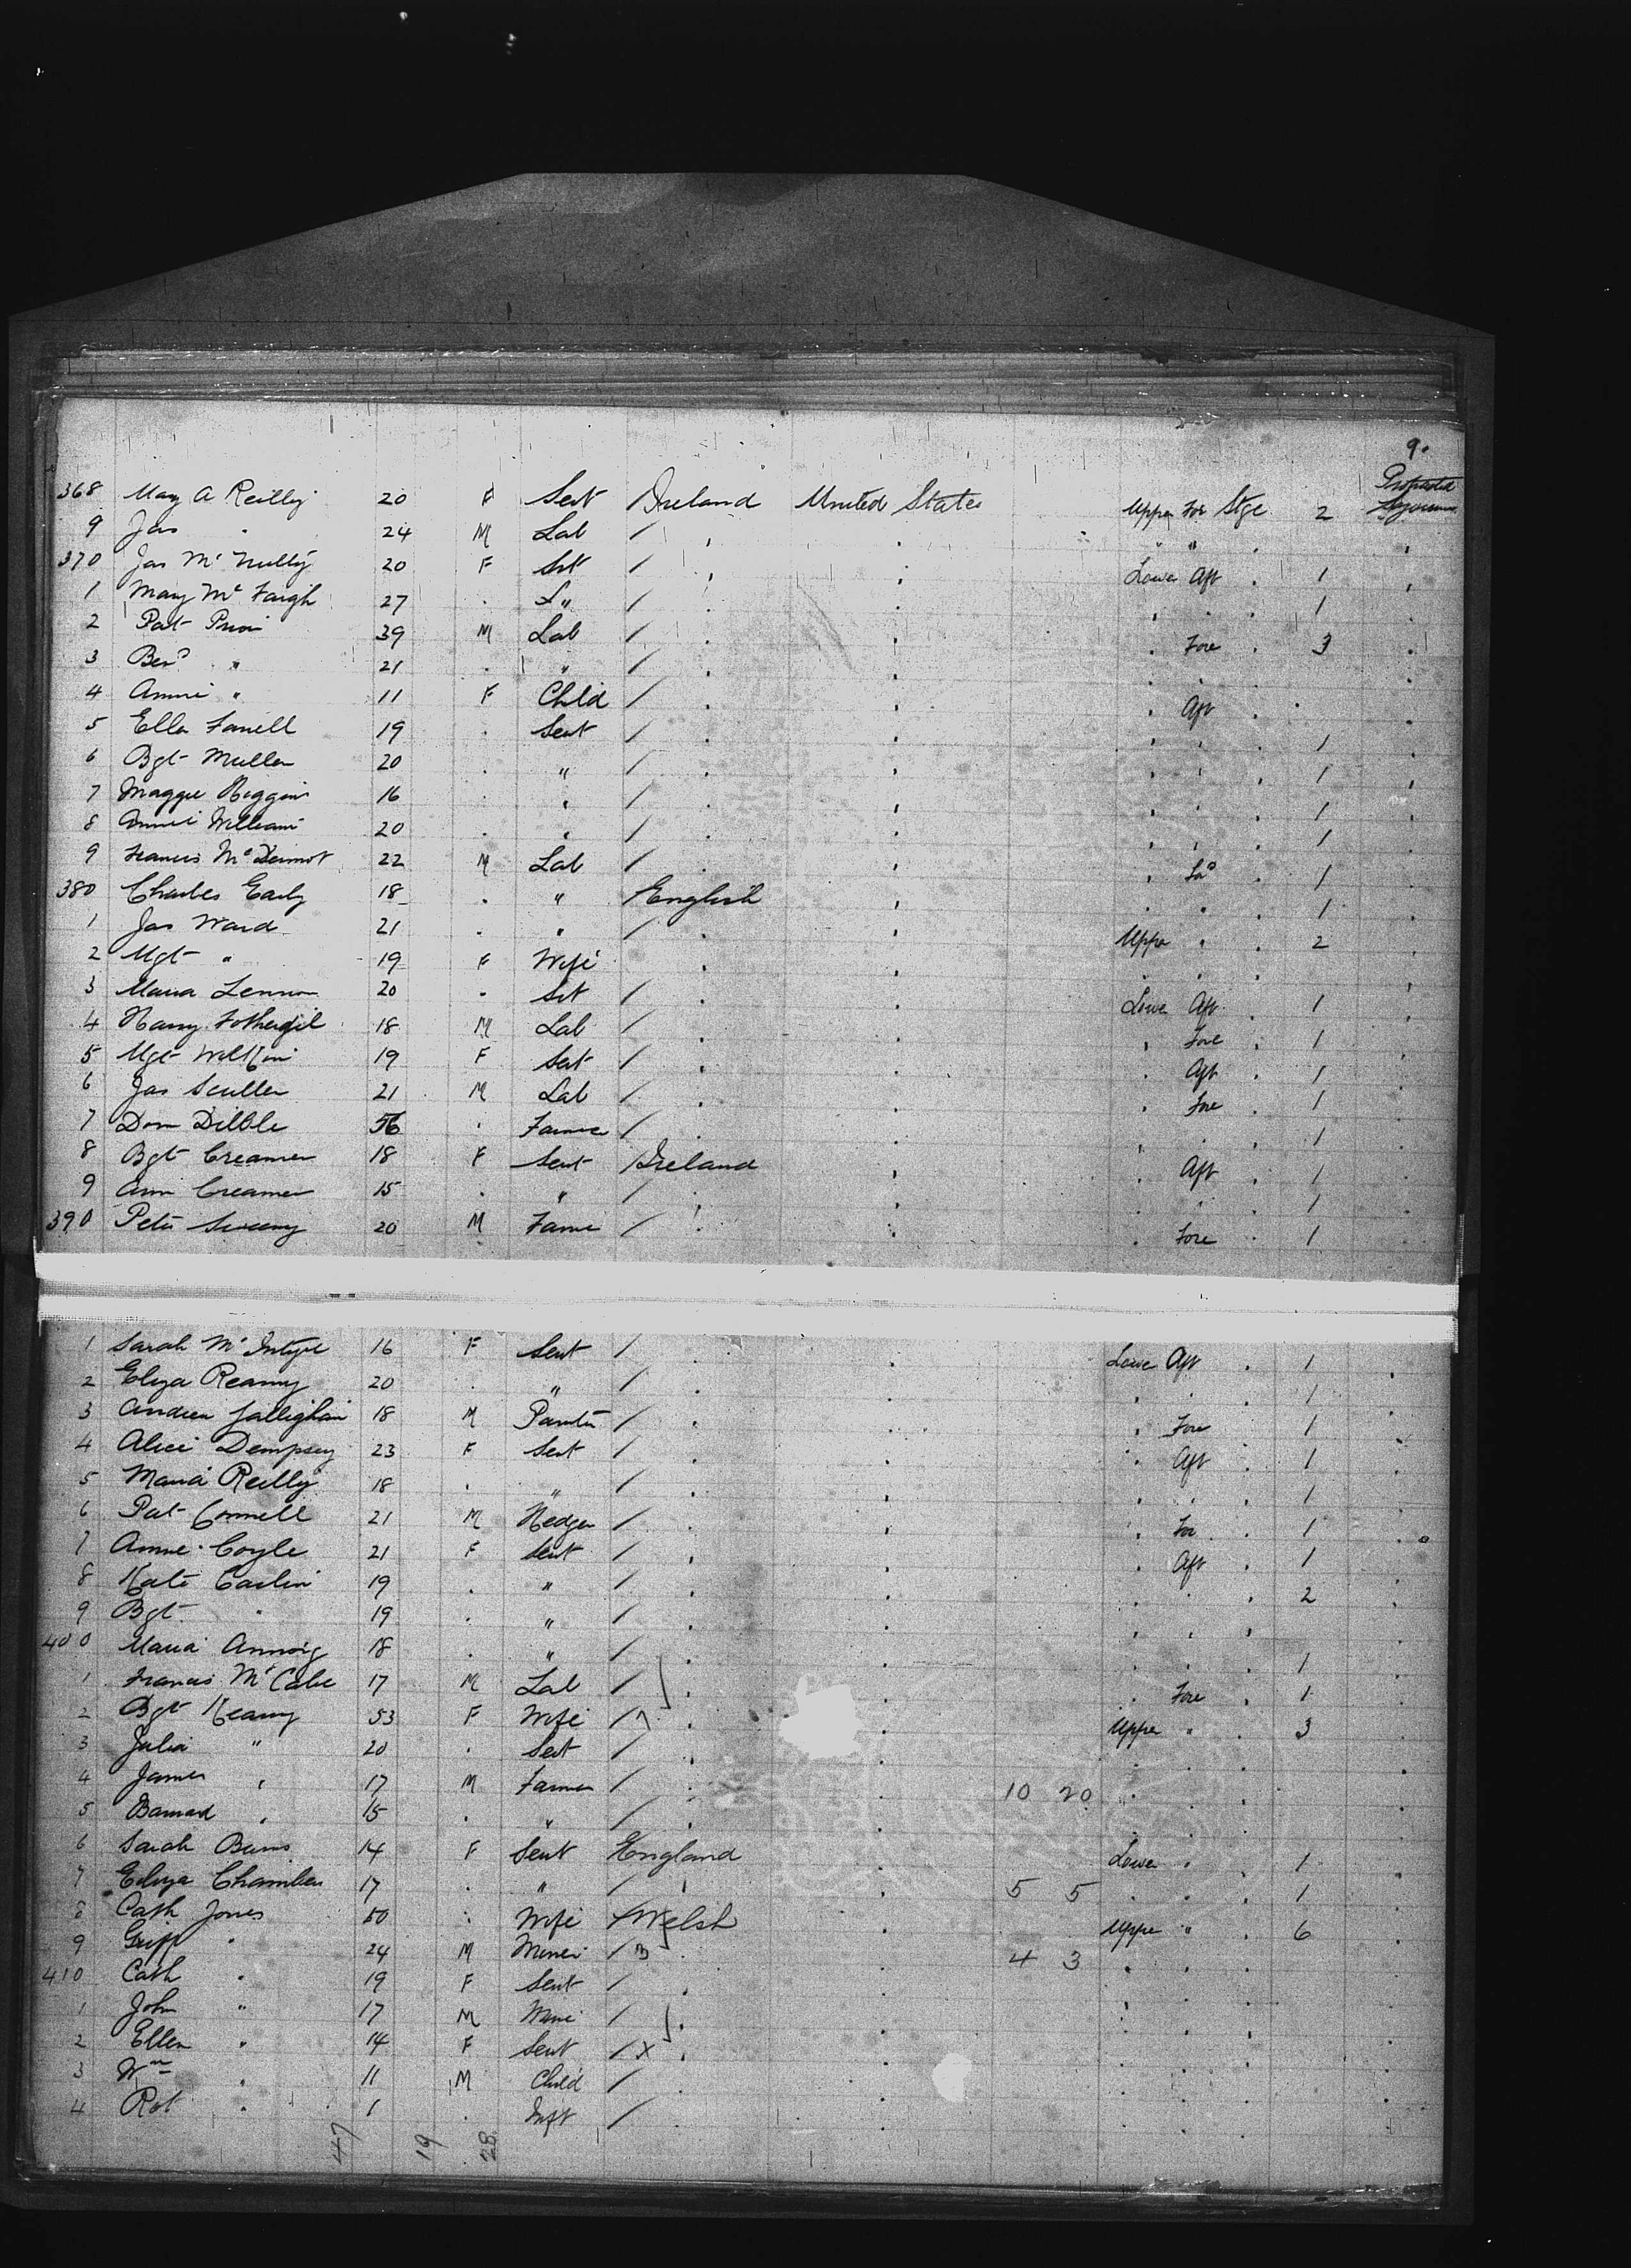 9.
Protracted Sojourn
368 Mary A Reilly 20 F Sevt Ireland United States Upper For Stge 2
9 Jas " 24 M Lab / " "
370 Jas Mc Nully 20 F Svt / Lower Aft 1
1 Mary Mc 27 " / 1
2 Pat Prior 39 M Lab / Fore 3
3 Bend " 21 " /
4 Annie " 11 F Child / Aft
5 Ellen Farrell 19 Sevt / 1
6 Bgt Mullen 20 " / 1
7 Maggie Higgins 16 " / 1
8 Annie Williams 20 " / 1
9 Francis Mc Dermot 22 M Lab / 1
380 Charles Early 18 " English 1
1 Jas Ward 21 " / Upper " 2
2 Mgt " 19 F Wife
3 Maria Lennon 20 Svt / Lower Aft 1
4 Harry Fothergil 18 M Lab / Fore 1
5 Mgt 19 F Sevt / Aft 1
6 Jas Scullen 21 M Lab / Fore 1
7 Dom Dibble Farmer / 1
8 Bgt Creamer 18 F Sevt Ireland Aft 1
9 Ann Creamer 15 " / 1
390 Peter Sweeny 20 M Farmer / Fore 1
1 Sarah Mc Intyre 16 F Sevt / Lower Aft 1
2 Eliza Reanny 20 " / 1
3 Andrew Gallighan 18 M Painter / Fore 1
4 Alice Dempsey 23 F Sevt / Aft 1
5 Maria Reilly 18 " / 1
6 Pat Connell 21 M Hedger / For 1
7 Anne Coyle 21 F Sevt / Aft 1
8 Kate Carlin 19 " / 2
9 Bgt " 19 " /
400 Maria 18 " / 1
1 Francis Mc Cabe 17 M Lab / Fore 1
2 Bgt Keany 53 F Wife / Upper " 3
3 Julia " 20 Sevt /
4 James " 17 M Farmer / 10 20
5 Barnard " 15 " /
6 Sarah Burns 14 F Sevt England Lower " 1
7 Eliza Chambers 17 " / 5 5 1
8 Cath Jones 50 Wife / Welsh Upper " 6
9 Griff " 24 M Miner / 4 3
410 Cath " 19 F Sevt /
1 John " 17 M /
2 Ellen " 14 F Sevt / x
3 Wm " 11 M Child /
4 Rob " 1 Inft /
47 19 28